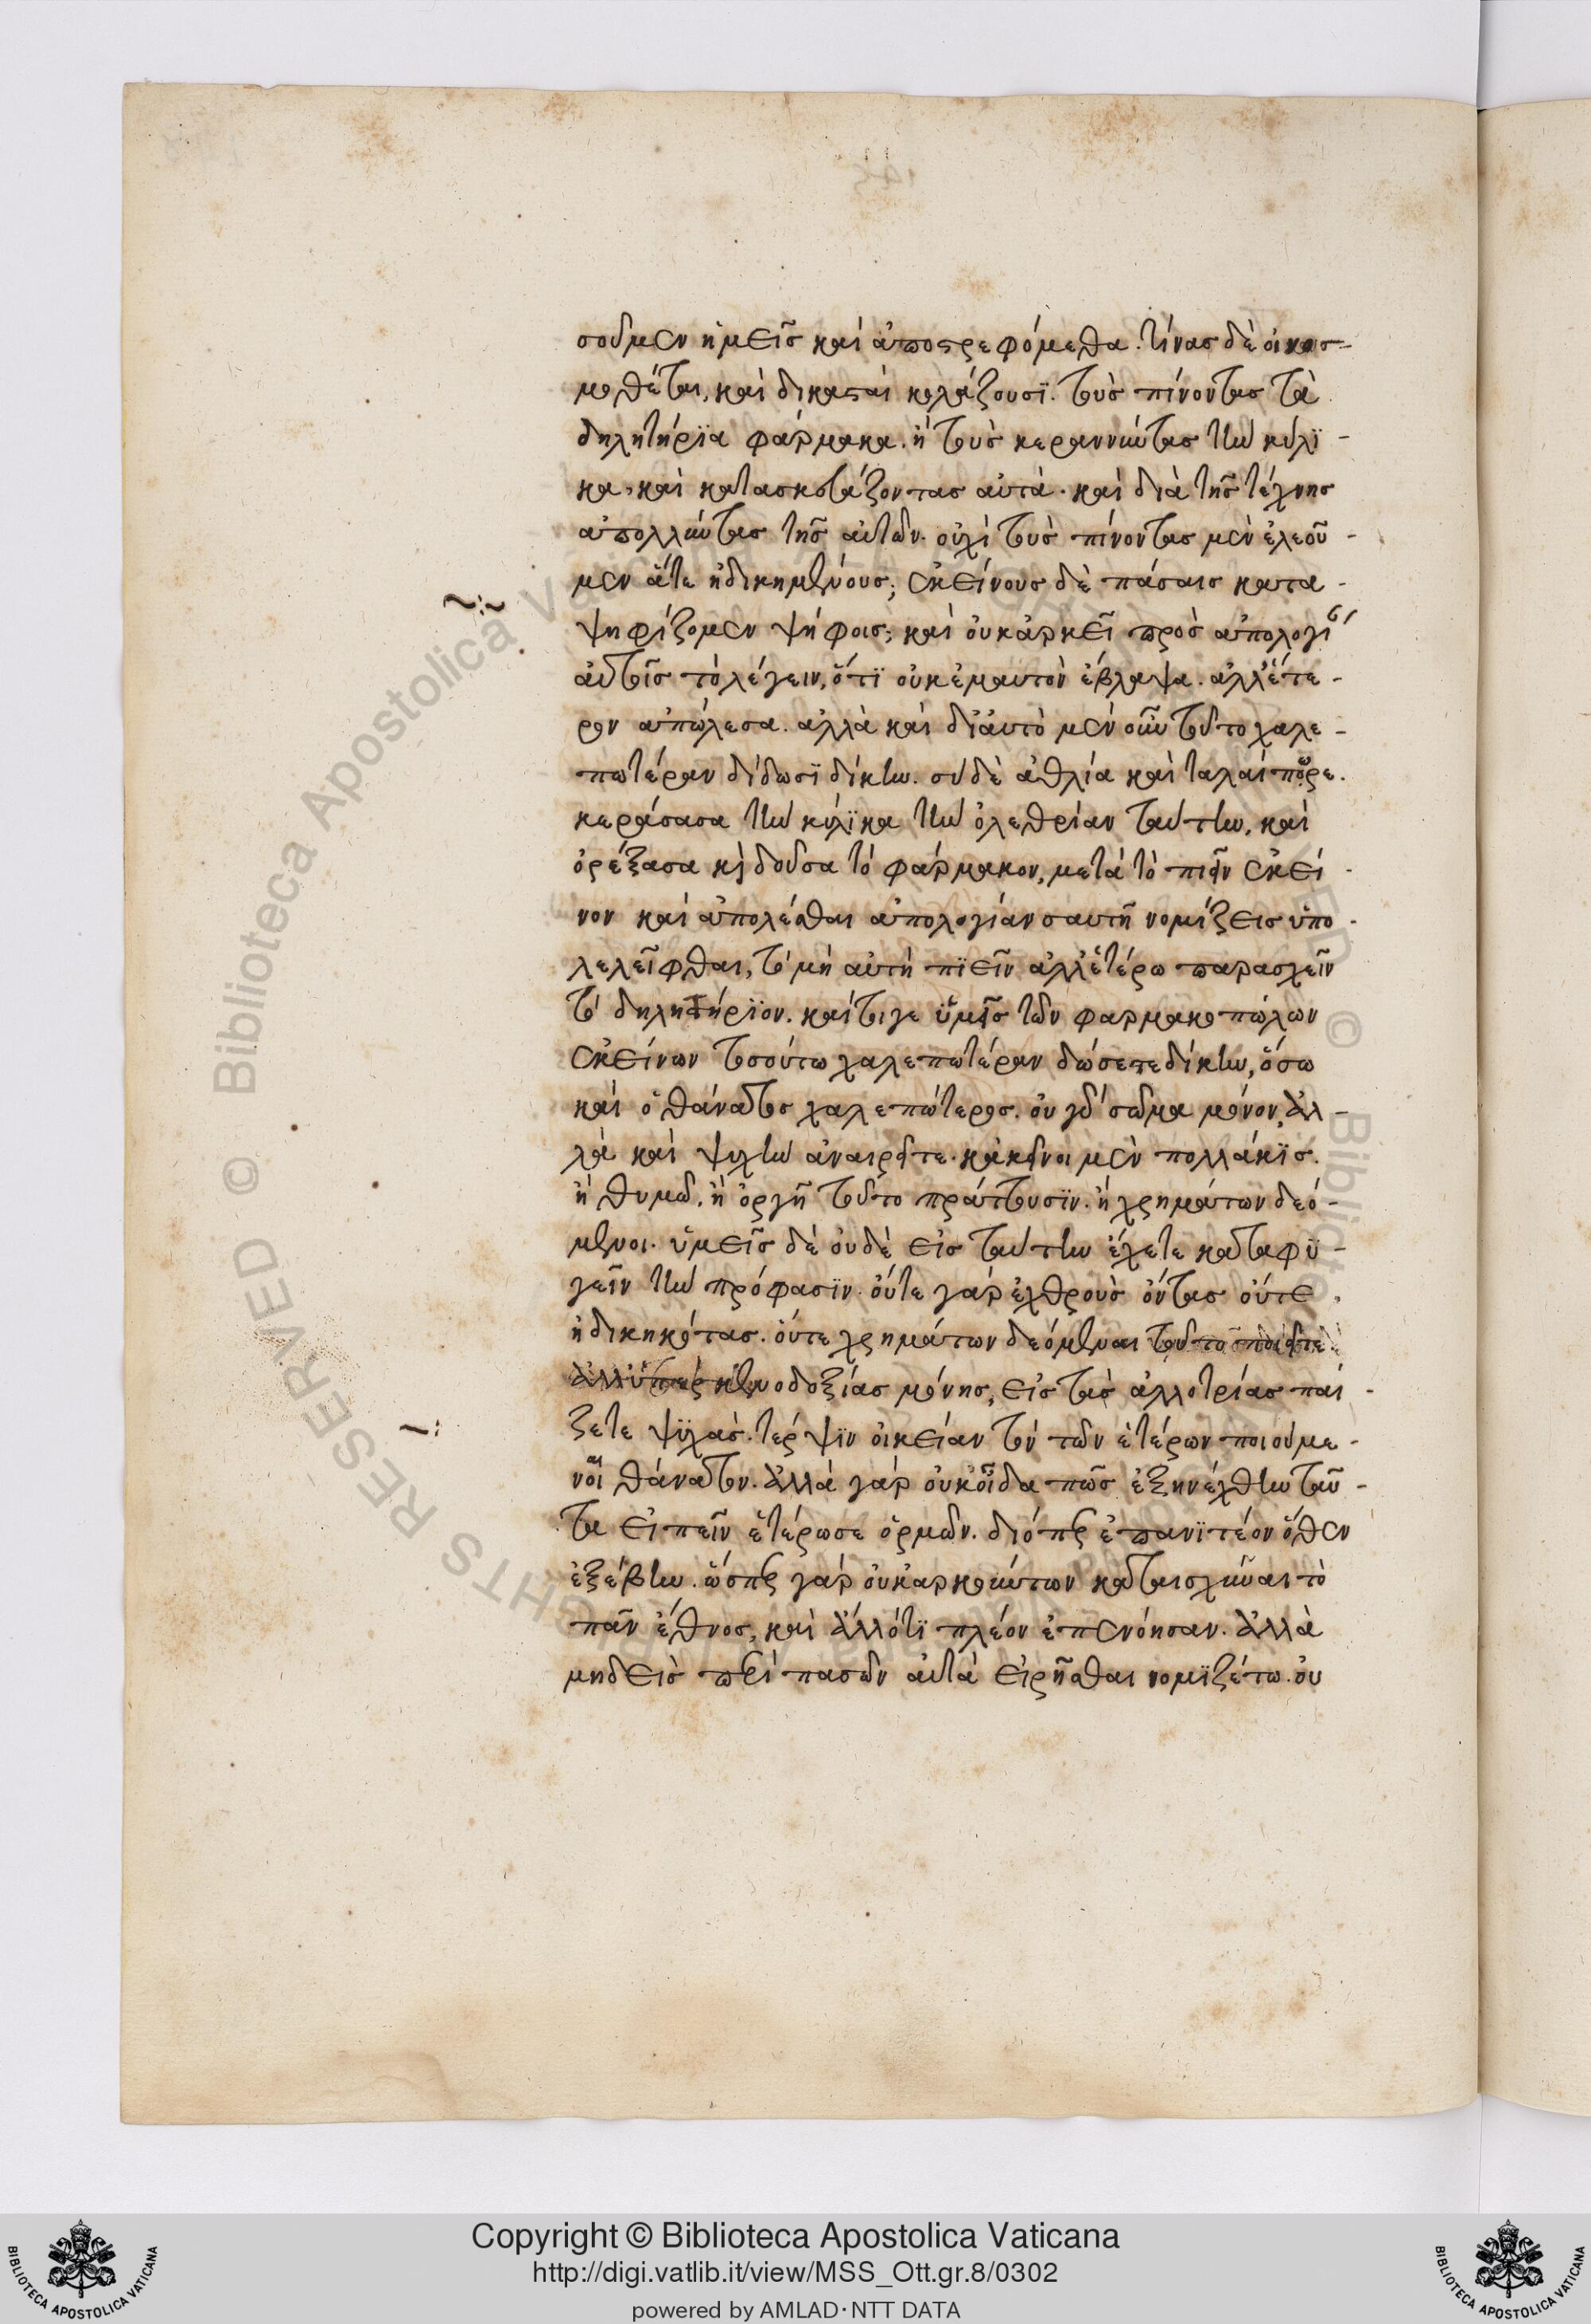 σοῦμεν ἡμεῖς καὶ ἀποστρεφόμεθα. τίνας δὲ οἱ νομο-
μοθέται, καὶ δικασταὶ κολάζουσϊ. τοὺς πίνοντας τὰ
δηλητήρϊα φάρμακα. ἢ τοὺς κεραννύντας τὴν κύλϊ-
κα, καὶ κατασκευάζοντας αὐτὰ. καὶ διὰ τῆς τέχνης
ἀπολλύντας τῆς αὐτῶν. οὐχὶ τοὺς πίνοντας μὲν ἐλεοῦ-
μεν ἅτε ἠδικημένους; ἐκείνους δὲ πάσαις κατα-
ψηφίζομεν ψήφοις; καὶ οὐκ ἀρκεῖ πρὸς ἀπολογί
αὐτοῖς τὸ λέγειν, ὅτϊ οὐκ ἐμαυτὸν ἔβλαψα. ἀλλ' ἕτε-
ρον ἀπώλεσα. ἀλλὰ καὶ δι' αὐτὸ μὲν οὖν τοῦτο χαλε-
πωτέραν δίδωσϊ δίκην. σὺ δὲ ἀθλία καὶ ταλαίπωρε.
κεράσασα τὴν κύλϊκα τὴν ὀλεθρίαν ταύτην, καὶ
ὀρέξασα καὶ δοῦσα τὸ φάρμακον, μετὰ τὸ πιεῖν ἐκεῖ-
νον καὶ ἀπολέσθαι ἀπολογίαν σαυτῇ νομίζεις ὑπο-
λελεῖφθαι, τὸ μὴ αὐτὴ πϊεῖν ἀλλ' ἑτέρω παρασχεῖν
τὸ δηλητήρϊον. καίτοιγε ὑμεῖς τῶν φαρμακοπώλων
ἐκείνων τοσούτω χαλεπωτέραν δώσετε δίκην, ὅσω
καὶ ὁ θάνατος χαλεπώτερος. οὐ γὰρ σῶμα μόνον, ἀλ-
λὰ καὶ ψυχὴν ἀναιρεῖτε. κἀκεῖνοι μὲν πολλάκϊς.
ἢ θυμῶ, ἢ ὀργῇ τοῦτο πράττουσϊν. ἢ χρημάτων δεό-
μενοι. ὑμεῖς δὲ οὐδὲ εἰς ταύτην ἔχετε καταφϋ-
γεῖν τὴν πρόφασϊν. οὔτε γὰρ ἐχθροὺς ὄντας οὔτε
ἠδικηκότας. οὔτε χρημάτων δεόμεναι τοῦτο ποιεῖτε
ἀλλ' ὑπὲρ κενοδοξίας μόνης, εἰς τὰς ἀλλοτρίας παί-
ζετε ψϋχὰς. τέρψϊν οἰκείαν τὸν τῶν ἑτέρων ποιούμε-
ναι θάνατον. ἀλλὰ γὰρ οὐκ οἶδα πῶς ἐξηνέχθην ταῦ-
τα εἰπεῖν ἑτέρωσε ὁρμῶν. διόπερ ἐπανϊτέον ὅθεν
ἐξέβην. ὥσπερ γὰρ οὐκ ἀρκούντων καταισχῦναι τὸ
πᾶν ἔθνος, καὶ ἄλλό τϊ πλέον ἐπενόησαν. ἀλλὰ
μηδεὶς περὶ πασῶν αὐτὰ εἰρῆσθαι νομϊζέτω. οὐ
Copyright © Biblioteca Apostolica Vaticana
http://digi.vatlib.it/view/MSS_Ott.gr.8/0302
powered by AMLAD·NTT DATA